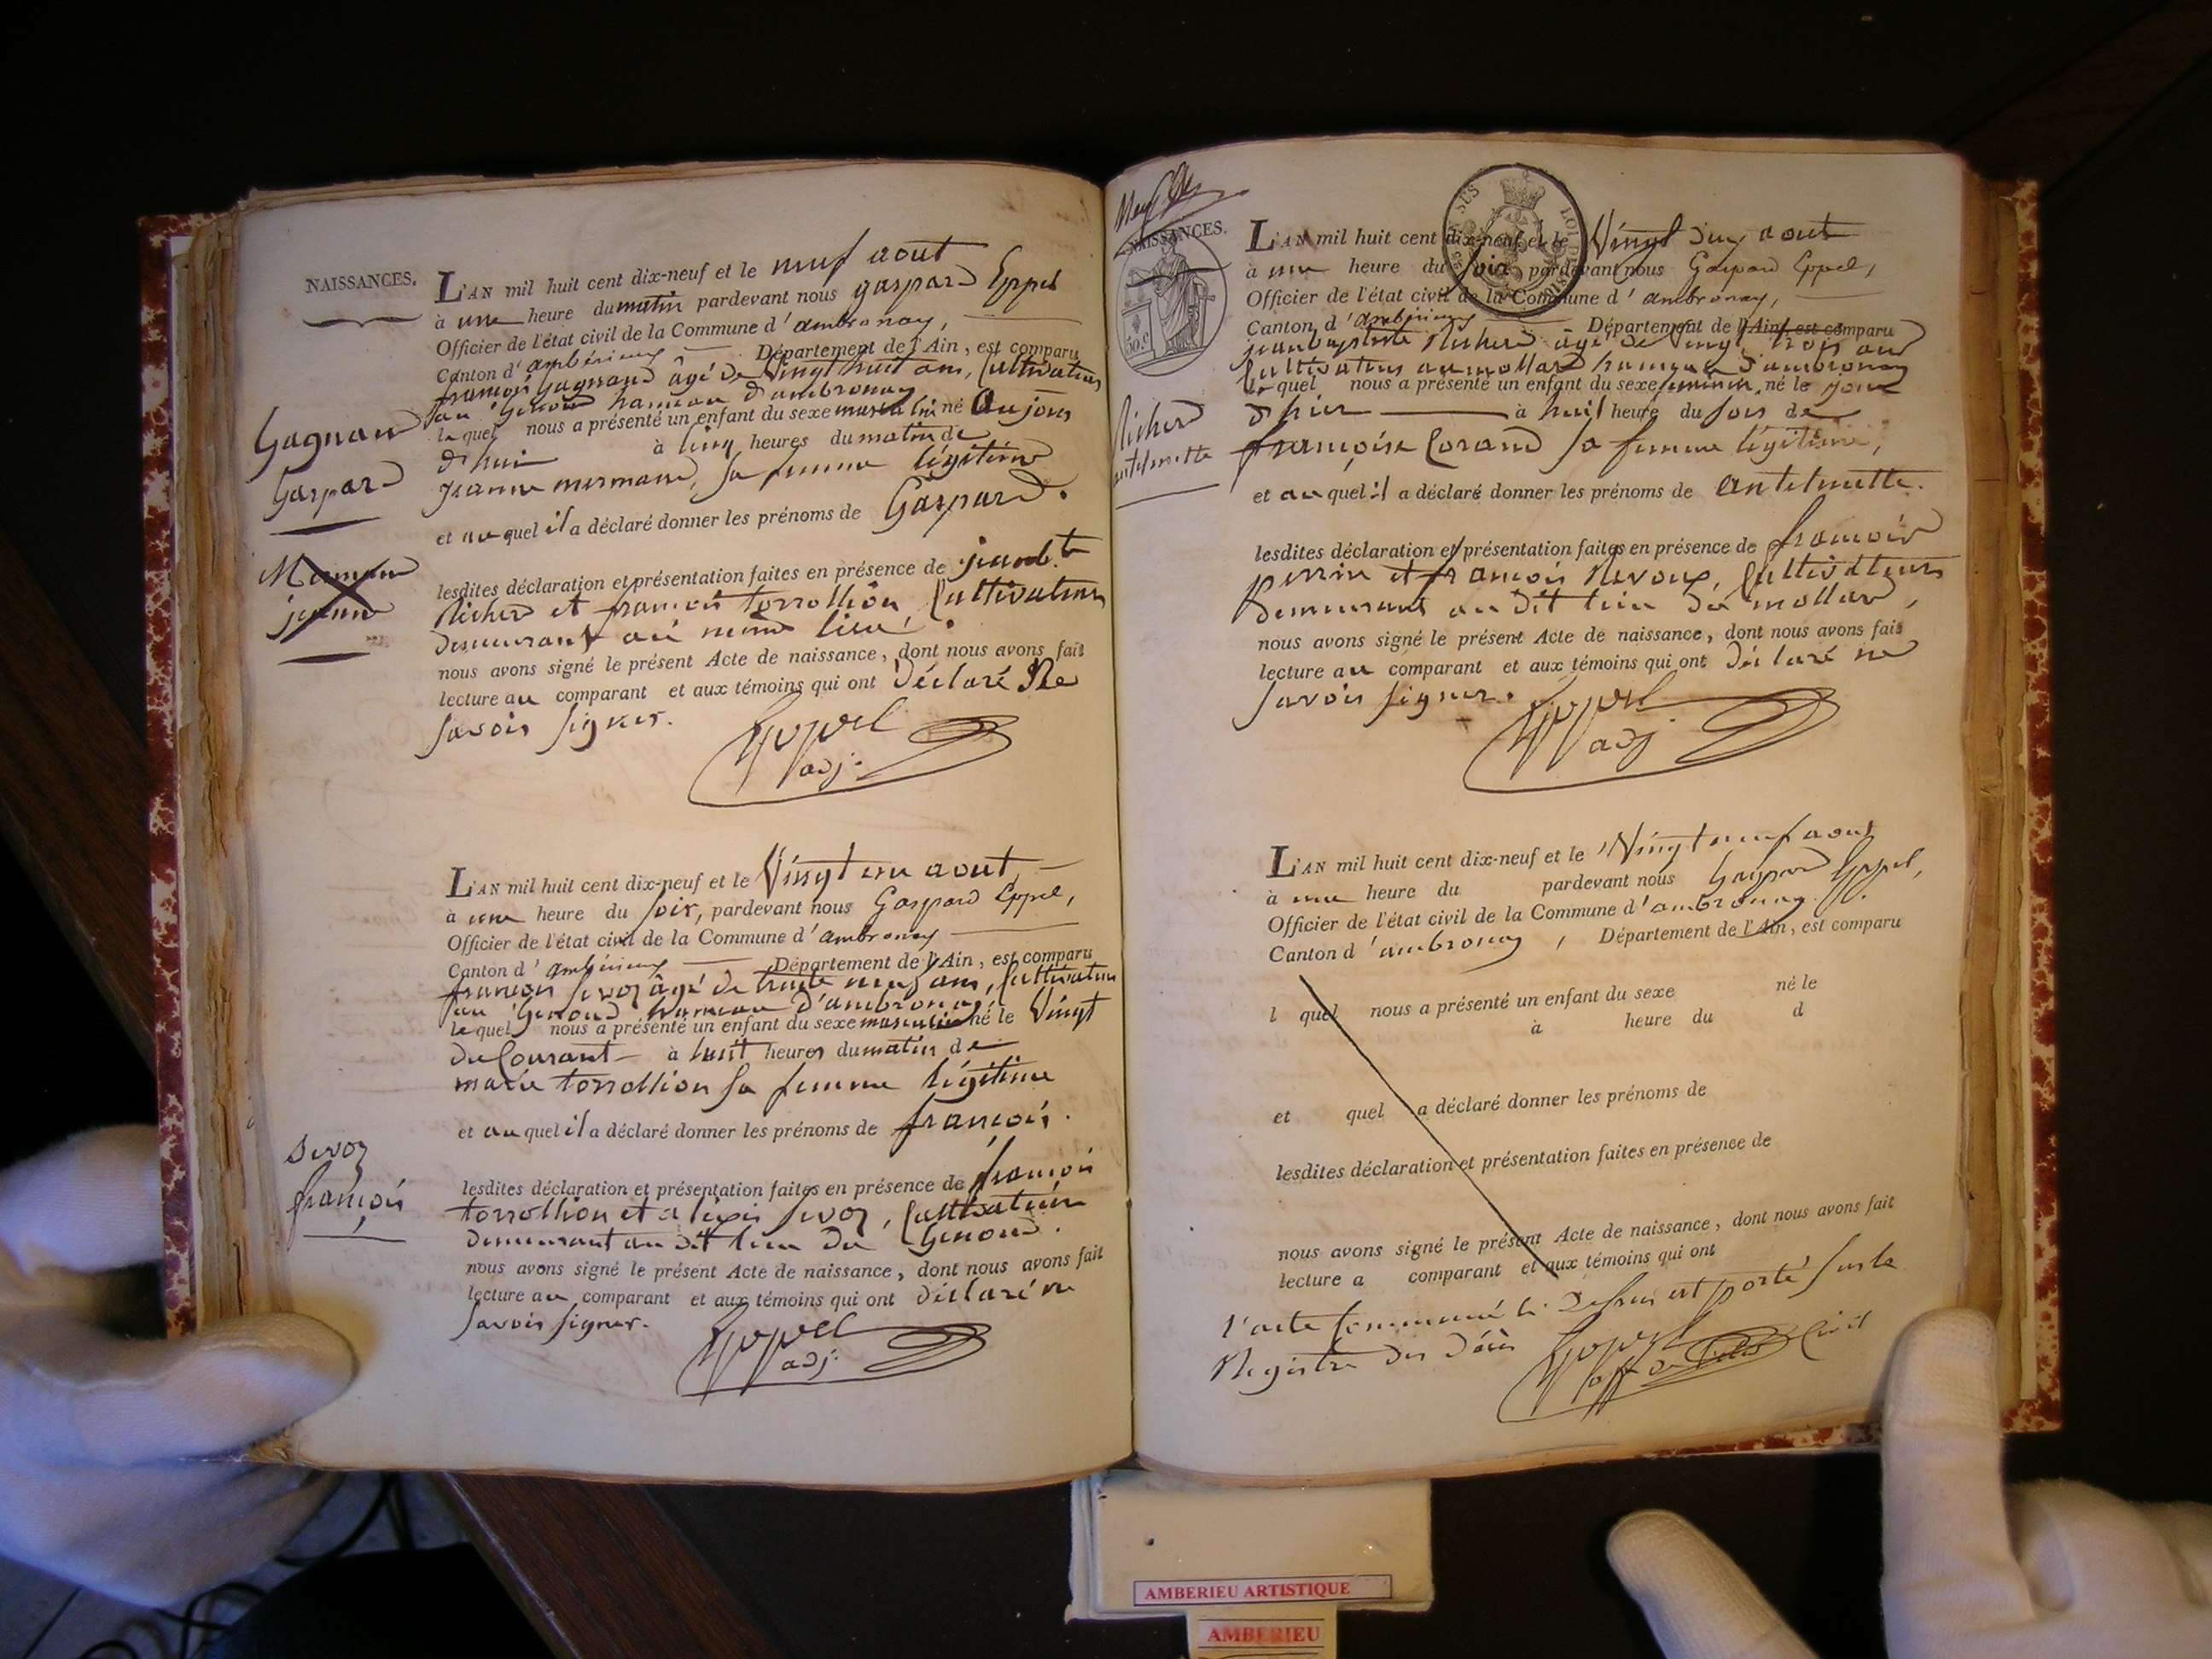 NAISSANCES.
L'AN mil huit cent dix-neuf et le neuf aout
à une heure du matin pardevant nous gaspard Eppel
Officier de l'état civil de la Commune d'ambronay,
Canton d'ambérieux Département de l'Ain, est comparu
françois Gagnand âgé de Vingt huit ans, Cultivateur
au Genoud hameau d'ambronay
lequel nous a présenté un enfant du sexe masculin né Aujour
d'hui à Cinq heures du matin de
jeanne mermand, sa femme légitime
et auquel il a déclaré donner les prénoms de Gaspard.
Gagnand
Gaspard
Mermand
jeanne
lesdites déclaration et présentation faites en présence de jean bte
Richerd et françois torrollion, Cultivateurs
demeurant au même lieu.
nous avons signé le présent Acte de naissance, dont nous avons fait
lecture au comparant et aux témoins qui ont Déclaré Ne
savoir signer.
Eppel
adj.
L'AN mil huit cent dix-neuf et le Vingt un aout
à une heure du soir, pardevant nous Gaspard Eppel,
Officier de l'état civil de la Commune d'ambronay
Canton d'ambérieux Département de l'Ain, est comparu
françois Sevoz âgé de trente neuf ans, Cultivateur
au Genoud hameau d'ambronay
lequel nous a présenté un enfant du sexe masculin né le Vingt
du Courant à huit heures du matin de
marie torrollion sa femme légitime
et auquel il a déclaré donner les prénoms de françois.
Sevoz
françois
lesdites déclaration et présentation faites en présence de françois
torrollion et alexis Sevoz, Cultivateurs
demeurant au dit lieu du Genoud.
nous avons signé le présent Acte de naissance, dont nous avons fait
lecture au comparant et aux témoins qui ont déclaré ne
savoir signer.
Eppel
adj.
NAISSANCES.
50 c.
L'AN mil huit cent dix-neuf et le Vingt deux aout
à une heure du soir pardevant nous Gaspard Eppel,
Officier de l'état civil de la Commune d'ambronay,
Canton d'ambérieux Département de l'Ain, est comparu
jean baptiste Richerd âgé de Vingt trois ans
Cultivateur au mollard hameau d'ambronay
lequel nous a présenté un enfant du sexe feminin, né le jour
d'hier à huit heure du soir de
françoise Corand sa femme légitime,
et auquel il a déclaré donner les prénoms de antelmette.
Richerd
antelmette
lesdites déclaration et présentation faites en présence de françois
perrin et françois Nevoux, Cultivateurs
demeurant au dit lieu du mollard,
nous avons signé le présent Acte de naissance, dont nous avons fait
lecture au comparant et aux témoins qui ont déclaré ne
savoir signer.
Eppel
adj
L'AN mil huit cent dix-neuf et le Vingt neuf aout
à une heure du pardevant nous Gaspard Eppel,
Officier de l'état civil de la Commune d'ambronay
Canton d'ambronay, Département de l'Ain, est comparu
l quel nous a présenté un enfant du sexe né le
à heure du d
et quel a déclaré donner les prénoms de
lesdites déclaration et présentation faites en présence de
nous avons signé le présent Acte de naissance, dont nous avons fait
lecture a comparant et aux témoins qui ont
l'acte Commencé ci-dessus est porté sur le
Registre des décès Eppel
off de Civil
AMBERIEU ARTISTIQUE
AMBERIEU